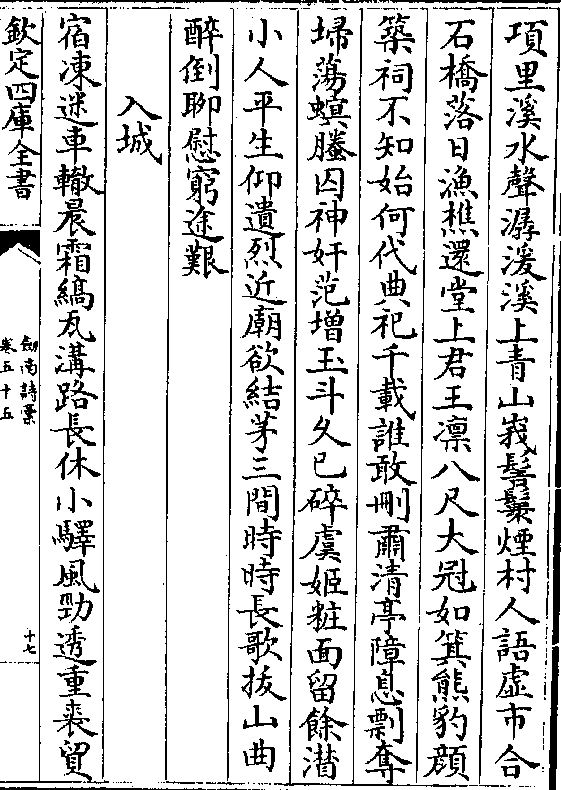 項里溪水聲潺湲溪上青山峩髻鬟煙村人語虛市合
石橋落日漁樵還堂上君王凛八尺大冠如箕熊豹顔
築祠不知始何代典祀千載誰敢刪肅清亭障息剽奪
埽蕩螟螣囚神奸范增玉斗久已碎虞姬粧面留餘潸
小人平生仰遺烈近廟欲結茅三間時時長歌拔山曲
醉倒聊慰窮途艱
入城
宿凍迷車轍晨霜縞瓦溝路長休小驛風勁透重裘貿
欽定四庫全書
劍南詩藁
卷五十五
十七